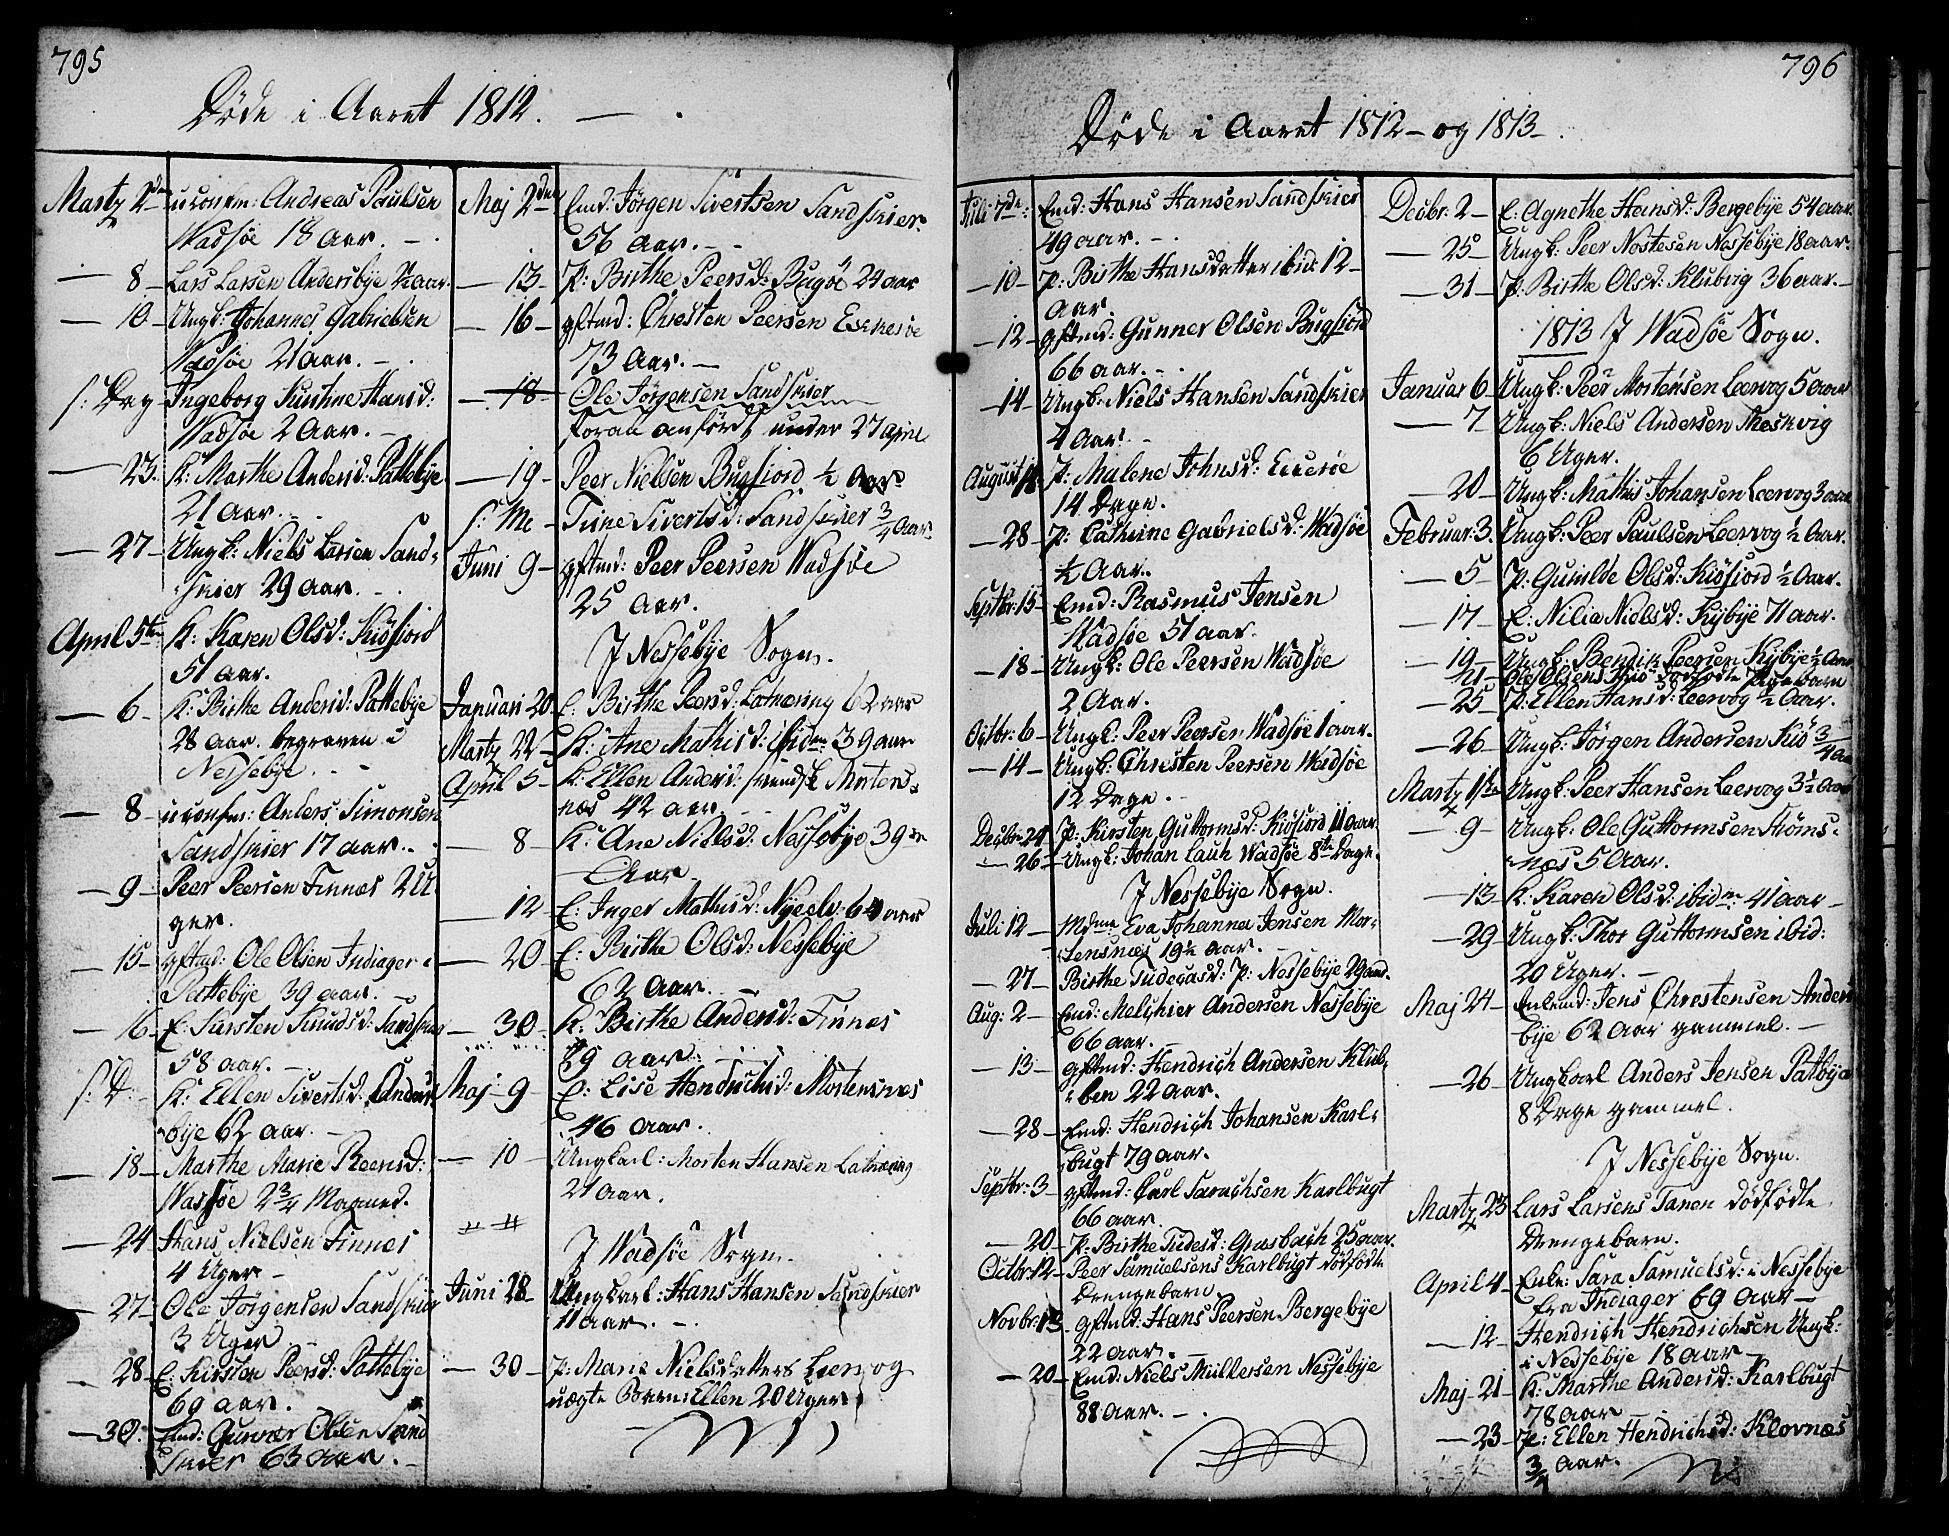 795
Døde i Aaret 1812. —
Martz 2den uconfm: Andreas Paulsen
Wadsøe 18 aar. —
— 8 — Lars Larsen Andersbye aar.
— 10 — Ungk: Johannes Gabrielsen
Wadsøe 21 aar. —
s: Dag Ingeborg Hansd:
Wadsøe 2 Aar. —
— 23. K: Marthe Andersd: Pattebye
21 aar.
— 27 — Ungk: Niels Larsen Sand-
skier 29 aar. —
April 5te K: Karen Olsd: Kiøfiord
51 aar.
— 6 — K: Birthe Andersd: Pattebye
28 aar. begraven i
Nessebye. —
— 8 — uconfm: Anders Simonsen
Sandskier 17 aar. —
— 9 — Peer Peersen Finnes 2 U-
ger.
— 15 — gftmd: Ole Olsen Indiager i
Pattebye 39 aar. —
— 16 — E: Kirsten Knudsd: Sandskier
58 aar. —
s: D: K: Ellen Sivertsd: Anders-
bye 62 aar. —
— 18 — Marthe Marie Peersd:
Wadsøe 2 3/4 Maaned.
— 24 Hans Nielsen Finnes
4 Uger —
— 27 — Ole Jørgensen Sandskier
3 Uger —
— 28 — E: Kirsten Peersd: Pattebye
69 aar. —
— 30. Emd: Gunner Olsen Sand
skier 63 aar. —
Maj 2den Emd: Jørgen Sivertsen Sandskier
56 aar. —
— 13 — P: Birthe Peersd: Bugøe 24 aar
— 16 — gftmd: Christen Peersen Eckerøe
73 Aar. —
— 18 — Ole Jørgensen Sandskier
foran anført under 27 April
— 19 — Peer Nielsen Bugfiord ½ Aar
s: Me — Trine Sivertsd: Sandskier 3/4 Aar.
Juni 9 — gftmd: Peer Peersen Wadsøe
25 aar.
J Nessebye Sogn.
Januari 20. E: Birthe Peersd: Latnering 62 aar
Martz 22 — K: Ane Mathisd: ibidm 39 aar
April 5 — K: Ellen Andersd: svensk Morten-
næs 42 aar —
— 8 — K: Ane Nielsd: Nessebye 39
Aar —
— 12 — E: Inger Mathisd: Nyeelv 64 aar
— 20 — E: Birthe Olsd: Nessebye
62 aar. —
— 30. — K: Birthe Andersd: Finnes
89 aar —
Maj — 9 — E: Lise Hendrichsd: Mortensnes
46 aar.
— 10 — Ungkarl: Morten Hansen Latnering
21 aar.
J Wadsøe Sogn.
Juni 28 — Ungkarl: Hans Hansen Sandskier
11 aar. —
— 30 — P: Marie Nielsdatters Leervog
uægte Barn: Ellen 20 Uger.
796
Døde i Aaret 1812 — og 1813 —
Juli 7de: Emd: Hans Hansen Sandskier
49 aar. —
— 10 — P: Birthe Hansdatter ibid: 12 —
aar.
— 12 — gftmd: Gunner Olsen Bugfiord
66 aar. —
— 14 — Ungk: Niels Hansen Sandskier
4 Aar. —
August 14. P: Malene Johnsd: Eckerøe
14 Dage.
— 28 — P: Cathrine Gabrielsd: Wadsøe
½ Aar.
Septbr: 15 — Emd: Rasmus Jensen
Wadsøe 51 aar.
— 18 — Ungk: Ole Peersen Wadsøe
2 Aar.
Octbr: 6 — Ungk: Peer Peersen Wadsøe 1 aar.
— 14 — Ungk: Christen Peersen Wadsøe
12 Dage. —
Decbr. 24 P: Kirsten Guttormsd: Kiøfiord 11 aar.
— 26 — Ungk: Johan Lauh Wadsøe 8te Dage.
J Nessebye Sogn.
Juli 12 — Mdme Eva Johanna Jensen Mor-
tensnæs 19½ aar. —
— 27 — Birthe Tudesasd: P: Nessebye 29 aar.
Aug: 2 — Emd: Melchier Andersen Nessebye
66 aar. —
— 13 — gftmd: Hendrich Andersen Klub-
ben 22 aar.
— 28 — Emd: Hendrich Johansen Karl-
bugt 79 aar.
Septbr: 3 — gftmd: Carl Sarachsen Karlbugt
66 aar.
— 20 — P: Birthe Tudesd: Grasbach 25 aar.
Octbr: 12 — Peer Samuelsens Karlbugt dødfødte
Drengebarn
Novbr: 13 gftmd: Hans Peersen Bergebye
22 aar. —
— 20 — Emd: Niels Mullersen Nessebye
88 aar. —
Decbr. 2 — E: Agnethe Hansd: Bergebye 54 aar.
— 25 — Ungk: Peer Nostesen Nessebye 18 aar.
— 31 — P: Birthe Olsd: Klubvig 36 aar. —
1813 J Wadsøe Sogn.
Januar 6 — Ungk: Peer Mortensen Leervog 5 aar
— 7 — Ungk: Niels Andersen Meskvig
6 Uger.
— 20 — Ungk: Mathis Johansen Leervog 3 aar
Februar: 3. Ungk: Peer Paulsen Leervog ½ Aar.
— 5 — P: Gunilde Olsd: Kiøfiord ½ Aar.
— 17 — E: Nilia Nielsd: Kybye 71 aar.
— 19 — Ungk: Bendik Peersen Kybye ½ Aar
21 — Ole Olsens Kiø dødfødte Pigebarn
— 25 — P: Ellen Hansd: Leervog ½ Aar.
— 26 — Ungk: Jørgen Andersen Kiø 3/4 Aar
Martz 1ste Ungk: Peer Hansen Leervog 3½ Aar
— 9 — Ungk: Ole Guttormsen Strøms-
næs 5 Aar.
— 13 K: Karen Olsd: ibidm 41 aar —
— 29 Ungk: Thor Guttormsen ibid:
20 Uger. —
Maj 24 — Enkmd: Jens Christensen Anders
bye 62 Aar gammel. —
— 26 — Ungkarl Anders Jensen Pattbye
8 Dage gammel.
J Nessebye Sogn.
Martz 23 Lars Larsens Tanen dødfødte
Drengebarn.
April 4 — Enke: Sara Samuelsd: i Nessebye
fra Indiager 69 aar —
— 12 — Hendrich Hendrichsen Ungk:
i Nessebye 18 aar —
Maj — 21 — K: Marthe Andersd: Karlbugt
78 aar —
— 23 — P: Ellen Hendrichsd: Klovnæs
3/4 aar.